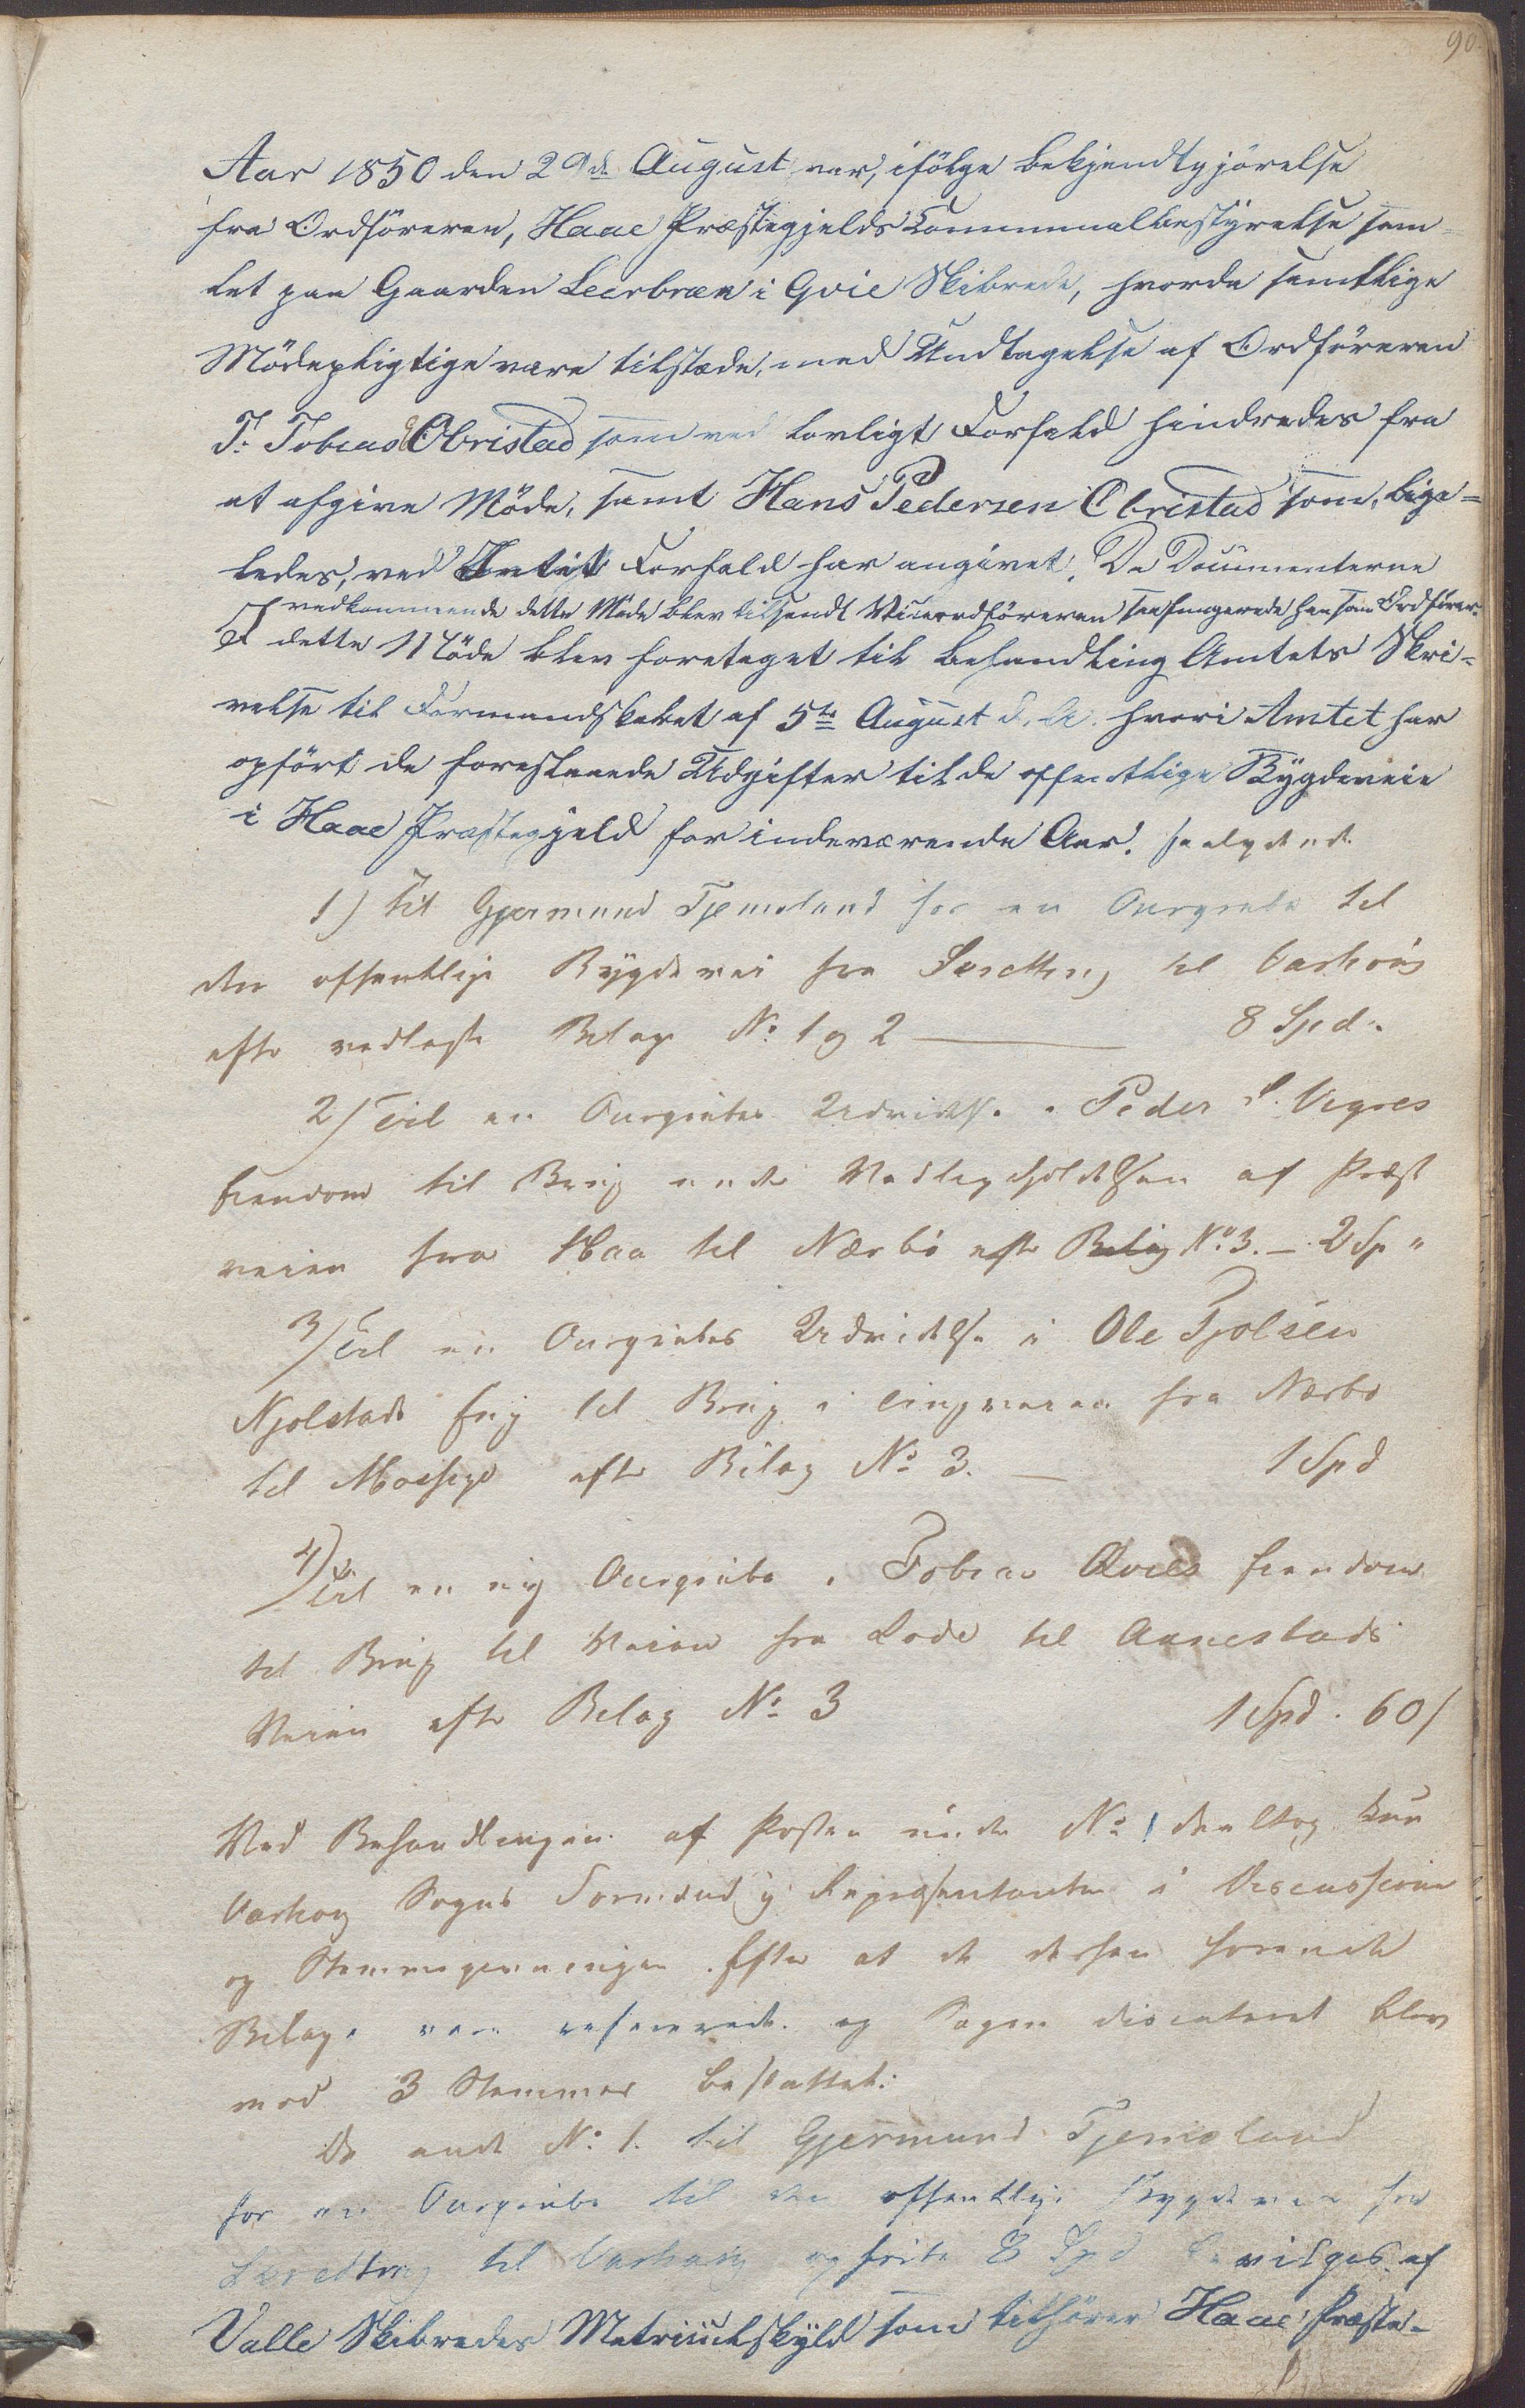 90.
Aar 1850 den 29de August var, ifölge bekjendtgjörelse
fra Ordföreren, Haae Præstegjelds Communalbestyrelse sam=
let paa Gaarden Leerbræk i Qvie Skibrede, hvorda samtlige
Mödepligtige vare tilstæde, med Undtagelse af Ordföreren
T. Tobias Obristad som ved lovligt Forfald hindredes fra
at afgive Möde, samt Hans Pedersen Obristad som, lige=
ledes, ved Forfald har angivet. Da Documenterne
vedkommende dette Möde blev tilsendt Viceordföreren saa fungerede han som Ordförer.
I dette Möde blev foretaget til behandling Amtets Skri=
velse til Formandskabet af 5te August d. A. hvori Amtet har
opfört de foreslaaede Udgifter til de offentlige Bygdeveie
i Haae Præstegjeld for indeværende Aar. saalydende
1) til Gjermund Tjemsland for en Aurgrube til
den offentlige Bygdevei fra til Varhoug
efter vedlagte Bilage No: 1 og 2 8 Spd.
2) Til en Aurgrubes Udvidelse i Peder Vigres
Eiendom til Brug under Vedligeholdelsen af Præst
veien fra Haa til Nærbö efter Bilag No. 3. – 2 Sp "
3) Til en Aurgrubes Udvidelse i Ole Tjolsen
Njolstads Eng til Brug i Tingveien fra Nærbö
til Mossige efter Bilag No 3. – 1 Spd
4) Til en ny Aurgrube i Tobias Qvies Eiendom
til Brug til Veien fra Lode til Aanestads
Veien efter Bilag No: 3 1 Spd. 60/
Ved Behandlingen af Posten under No 1 deeltog kun
Varhoug Sogns Formænd og Repræsentanter i Discussionen
og Stemmegivningen. Efter at de dertil hörende
Bilage vare refererede og Sagen discuteret blev
med 3 Stemmer besluttet:
De under No: 1. til Gjermund Tjemsland
for en Aurgrube til den offentlige Bygdevei fra
til Varhoug opförte 8 Spd bevilges af
Valle Skibredes Matriculskyld som tilhörer Haae Præste-